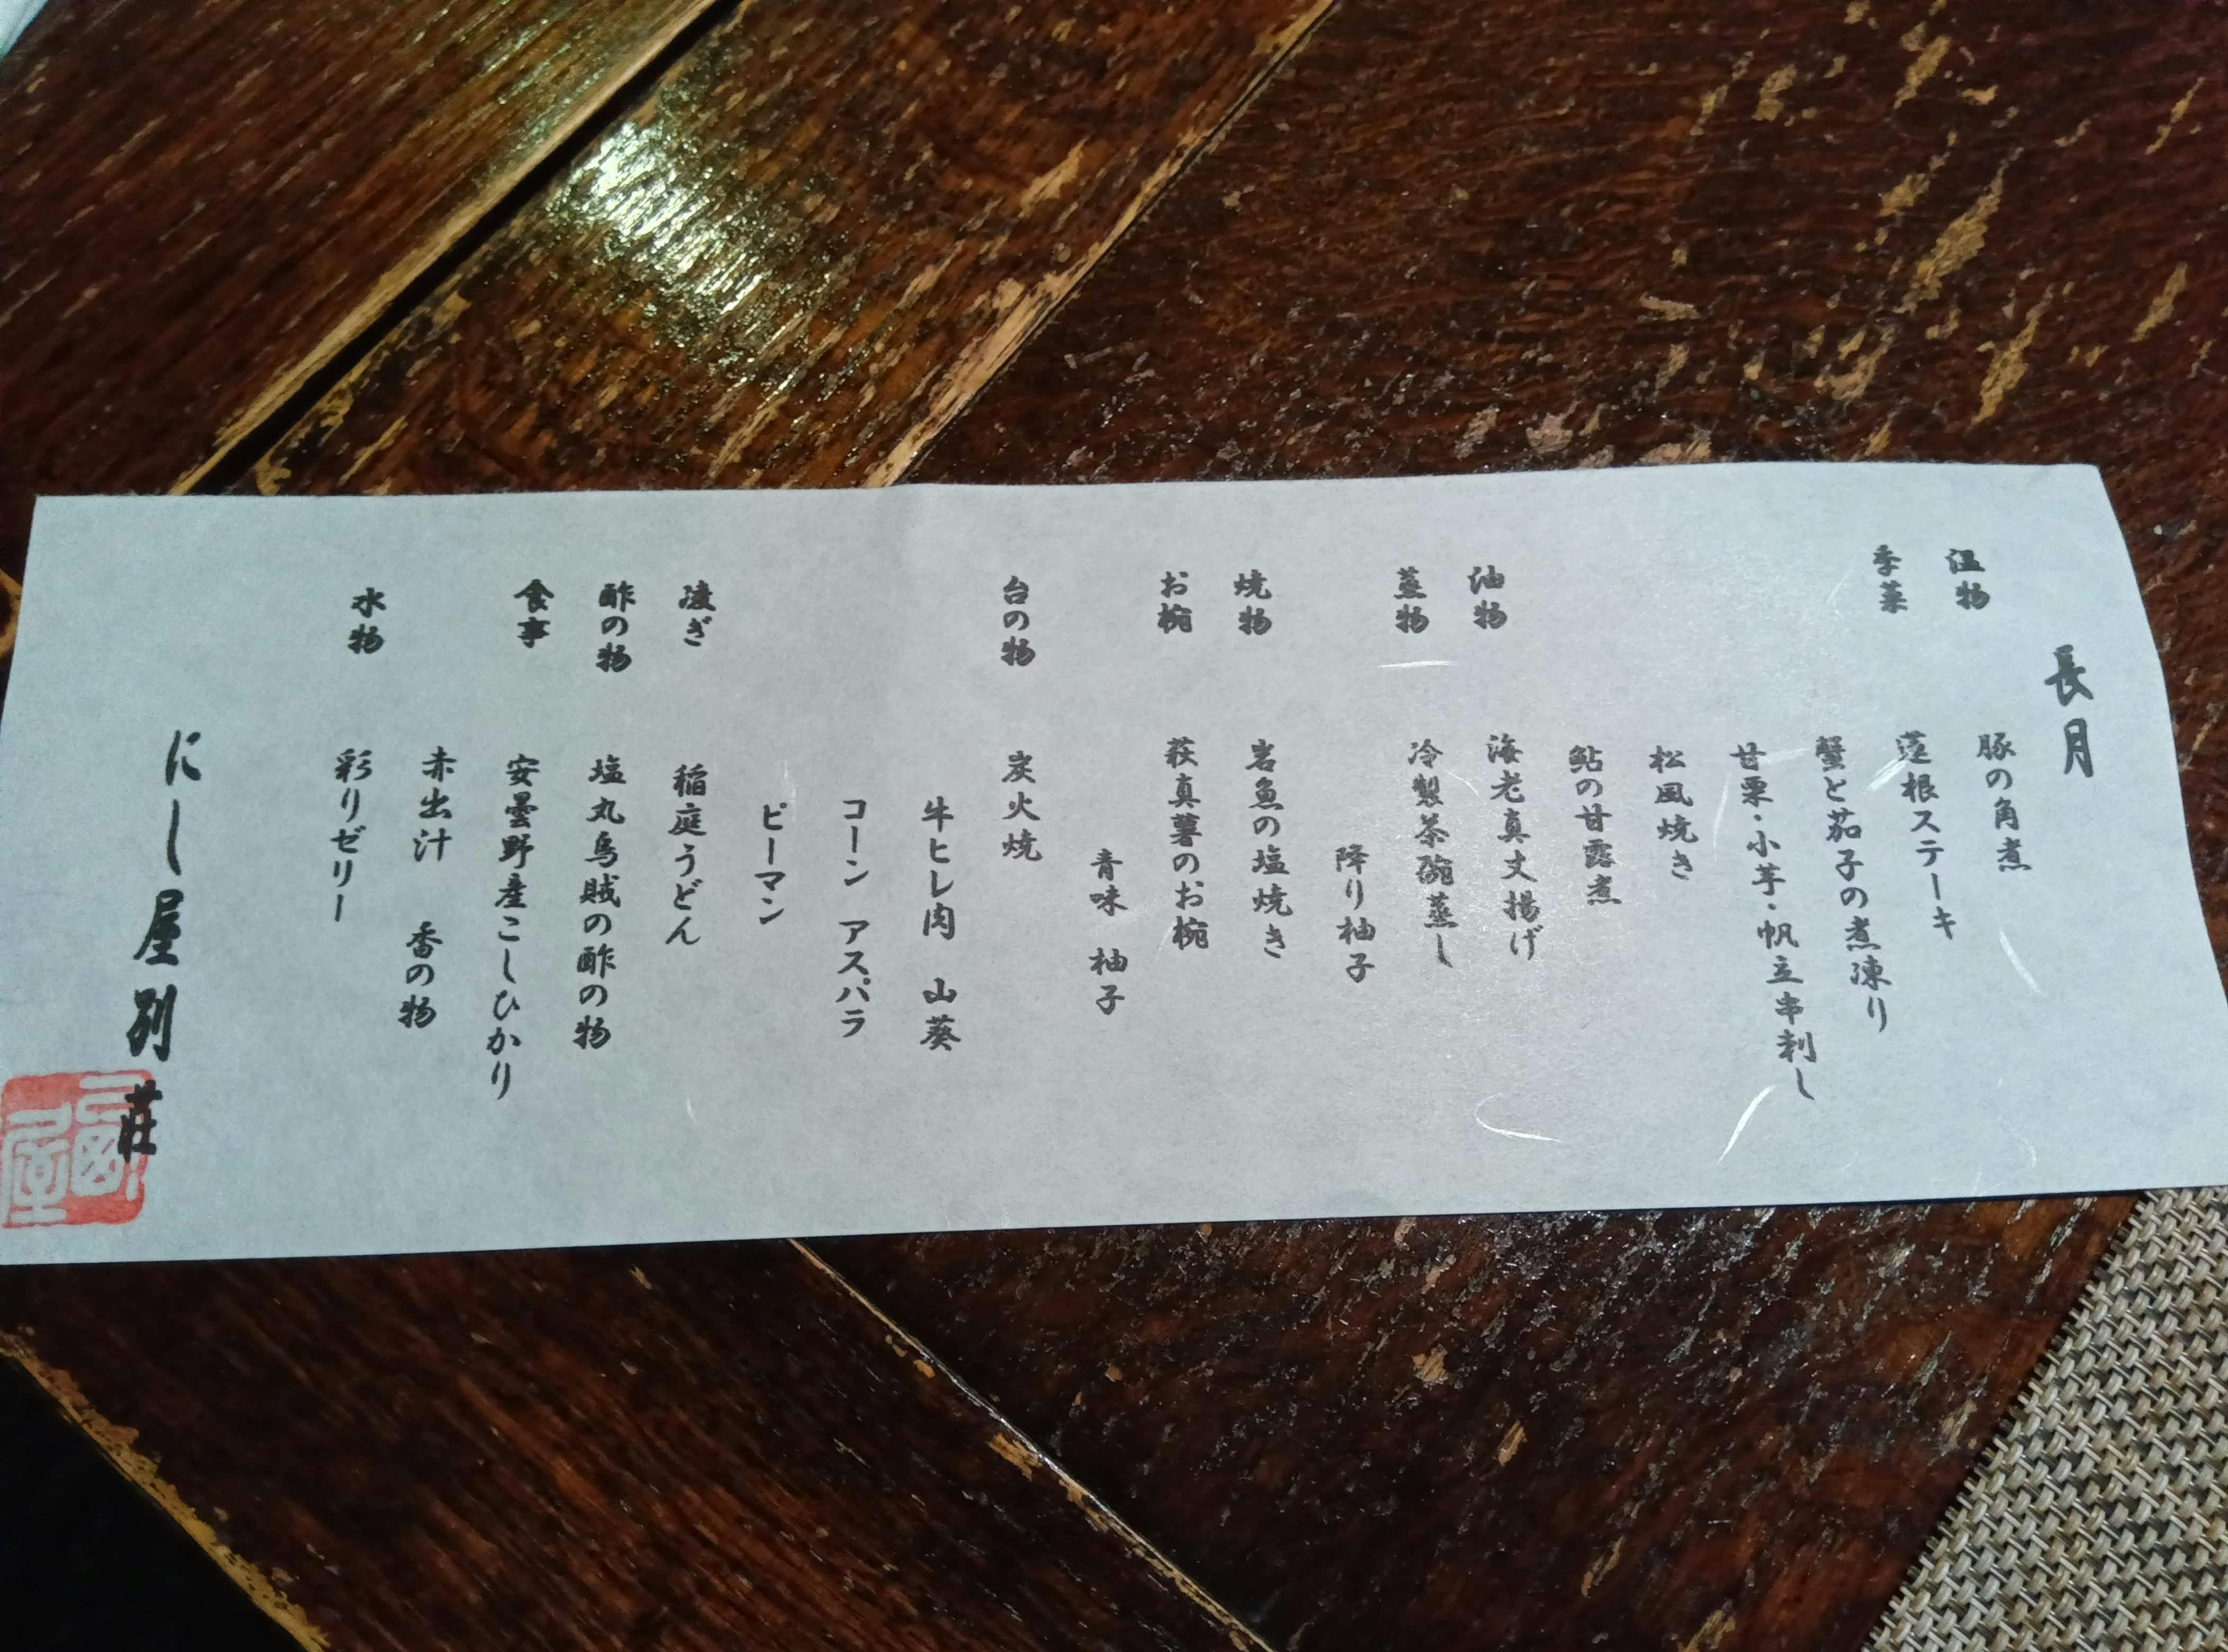 長月
温物 豚の角煮
季菜 蓮根ステーキ
蟹と茄子の煮凍り
甘栗・小芋・帆立串刺し
松風焼き
鮎の甘露煮
油物 海老真丈揚げ
蒸物 冷製茶碗蒸し
降り柚子
焼物 岩魚の塩焼き
お椀 萩真薯のお椀
青味 柚子
台の物 炭火焼
牛ヒレ肉 山葵
コーン アスパラ
ピーマン
凌ぎ 稲庭うどん
酢の物 塩丸烏賊の酢の物
食事 安曇野産こしひかり
赤出汁 香の物
水物 彩りゼリー
にし屋別荘